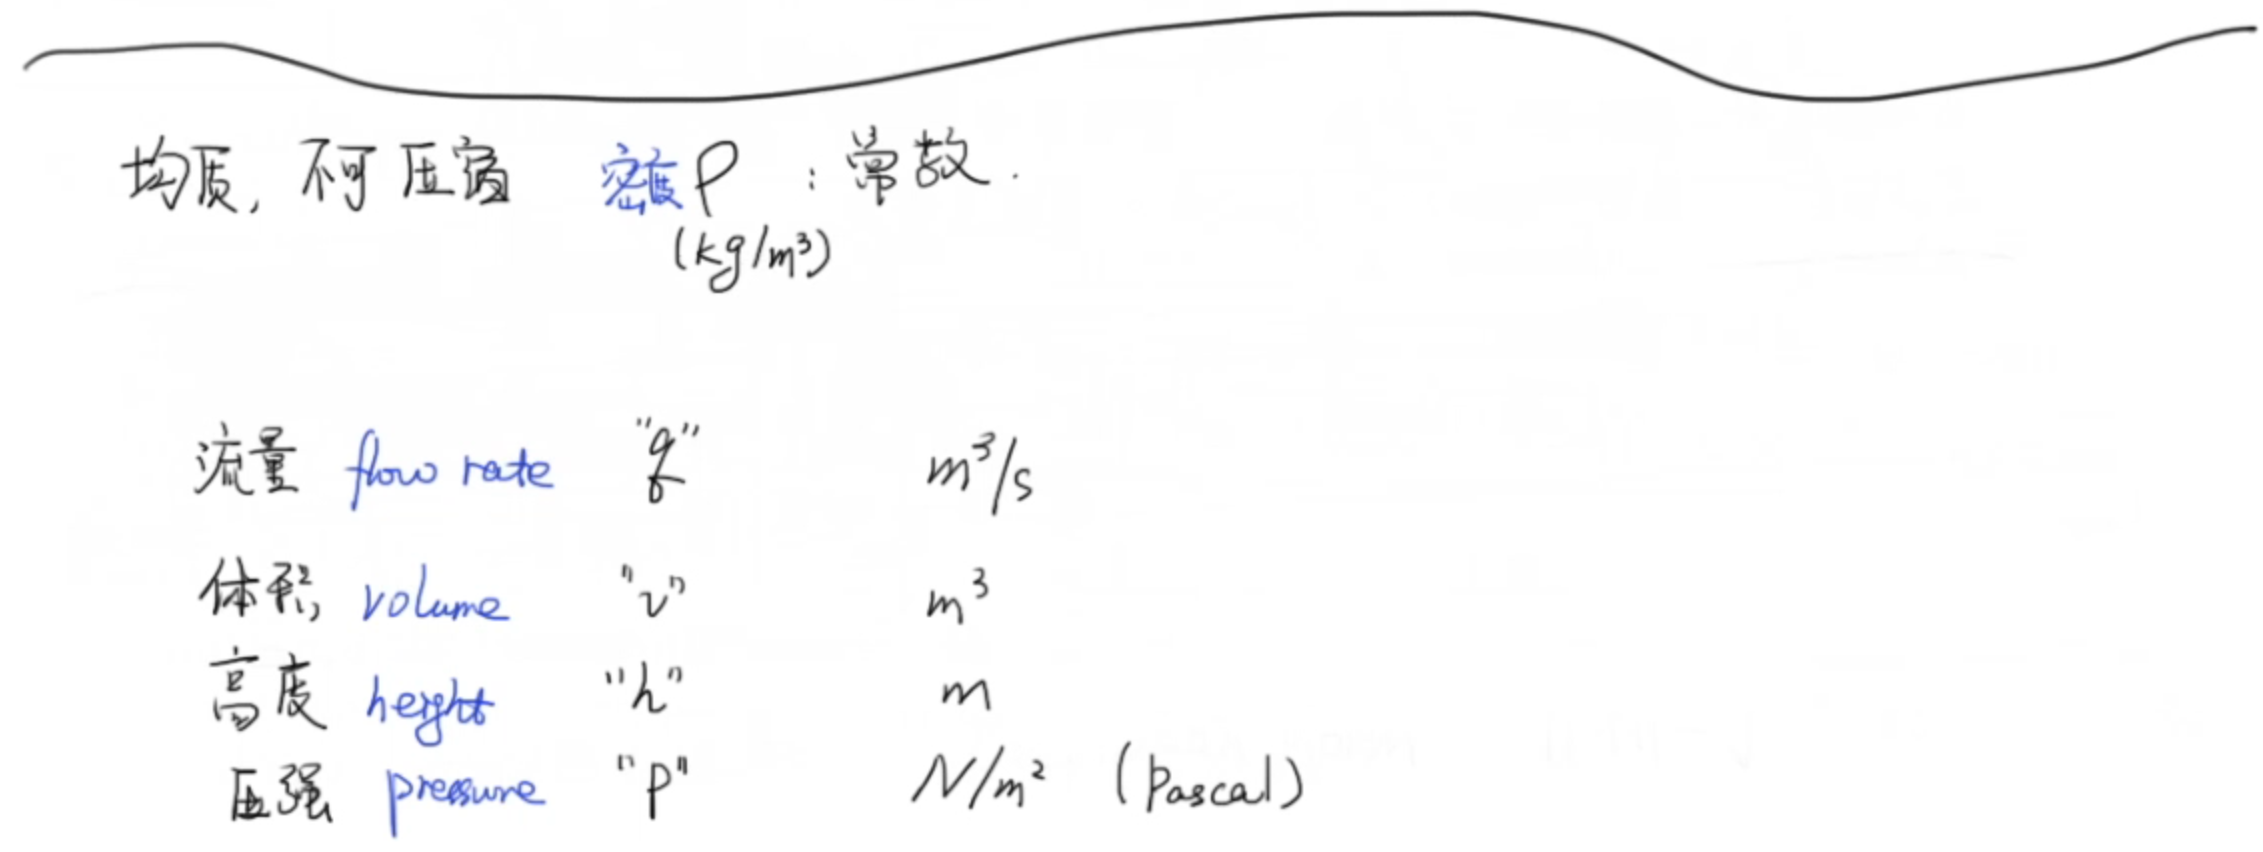 均质, 不可压缩 密度 ρ : 常数.
(kg/m³)
流量 flow rate "q" m³/s
体积 volume "v" m³
高度 height "h" m
压强 pressure "P" N/m² (Pascal)